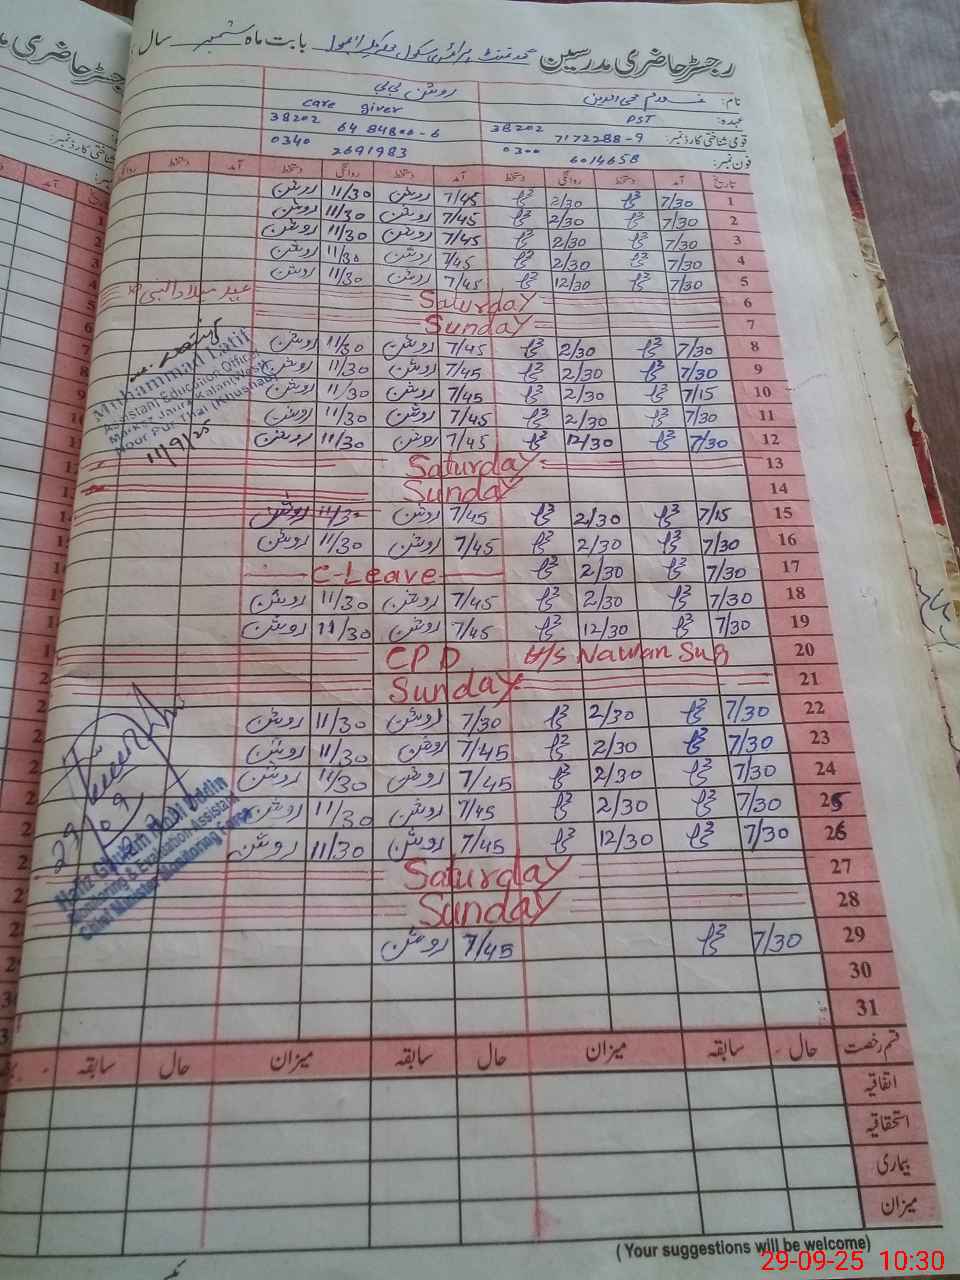 رجسٹر حاضری مدرسین گورنمنٹ پرائمری سکول بابت ماہ ستمبر سال
نام: غلام محی الدین روشن بی بی
عہدہ: PST care giver
قومی شناختی کارڈ نمبر: 38202 7172288-9 38202 6484800-6
فون نمبر: 0300 6014658 0340 2691983
تاریخ آمد دستخط روانگی دستخط آمد دستخط روانگی دستخط آمد دستخط
1 7/30 2/30 7/45 روشن 11/30 روشن
2 7/30 2/30 7/45 روشن 11/30 روشن
3 7/30 2/30 7/45 روشن 11/30 روشن
4 7/30 2/30 7/45 روشن 11/30 روشن
5 7/30 12/30 7/45 روشن 11/30 روشن
6 Saturday عید میلاد النبی
7 Sunday
8 7/30 2/30 7/45 روشن 11/30 روشن
9 7/30 2/30 7/45 روشن 11/30 روشن
10 7/15 2/30 7/45 روشن 11/30 روشن
11 7/30 2/30 7/45 روشن 11/30 روشن
12 7/30 12/30 7/45 روشن 11/30 روشن
Muhammad Latif
Assistant Education Officer
Markaz Jaura Kalan (West)
Noor Pur Thal (Khushab)
11/9/25
13 Saturday
14 Sunday
15 7/15 2/30 7/45 روشن 11/30 روشن
16 7/30 2/30 7/45 روشن 11/30 روشن
17 7/30 2/30 C-Leave
18 7/30 2/30 7/45 روشن 11/30 روشن
19 7/30 12/30 7/45 روشن 11/30 روشن
20 CPD H/S Nawan Sug
21 Sunday
22 7/30 2/30 7/30 روشن 11/30 روشن
23 7/30 2/30 7/45 روشن 11/30 روشن
24 7/30 2/30 7/45 روشن 11/30 روشن
25 7/30 2/30 7/45 روشن 11/30 روشن
26 7/30 12/30 7/45 روشن 11/30 روشن
Hafiz Ghulam Mohi Uddin
Monitoring & Evaluation Assistant
Chief Minister Monitoring Force
27 Saturday
28 Sunday
29 7/30 7/45 روشن
30
31
قسم رخصت حال سابقہ میزان حال سابقہ میزان حال سابقہ
اتفاقیہ
استحقاقیہ
بیماری
میزان
( Your suggestions will be welcome)
29-09-25 10:30